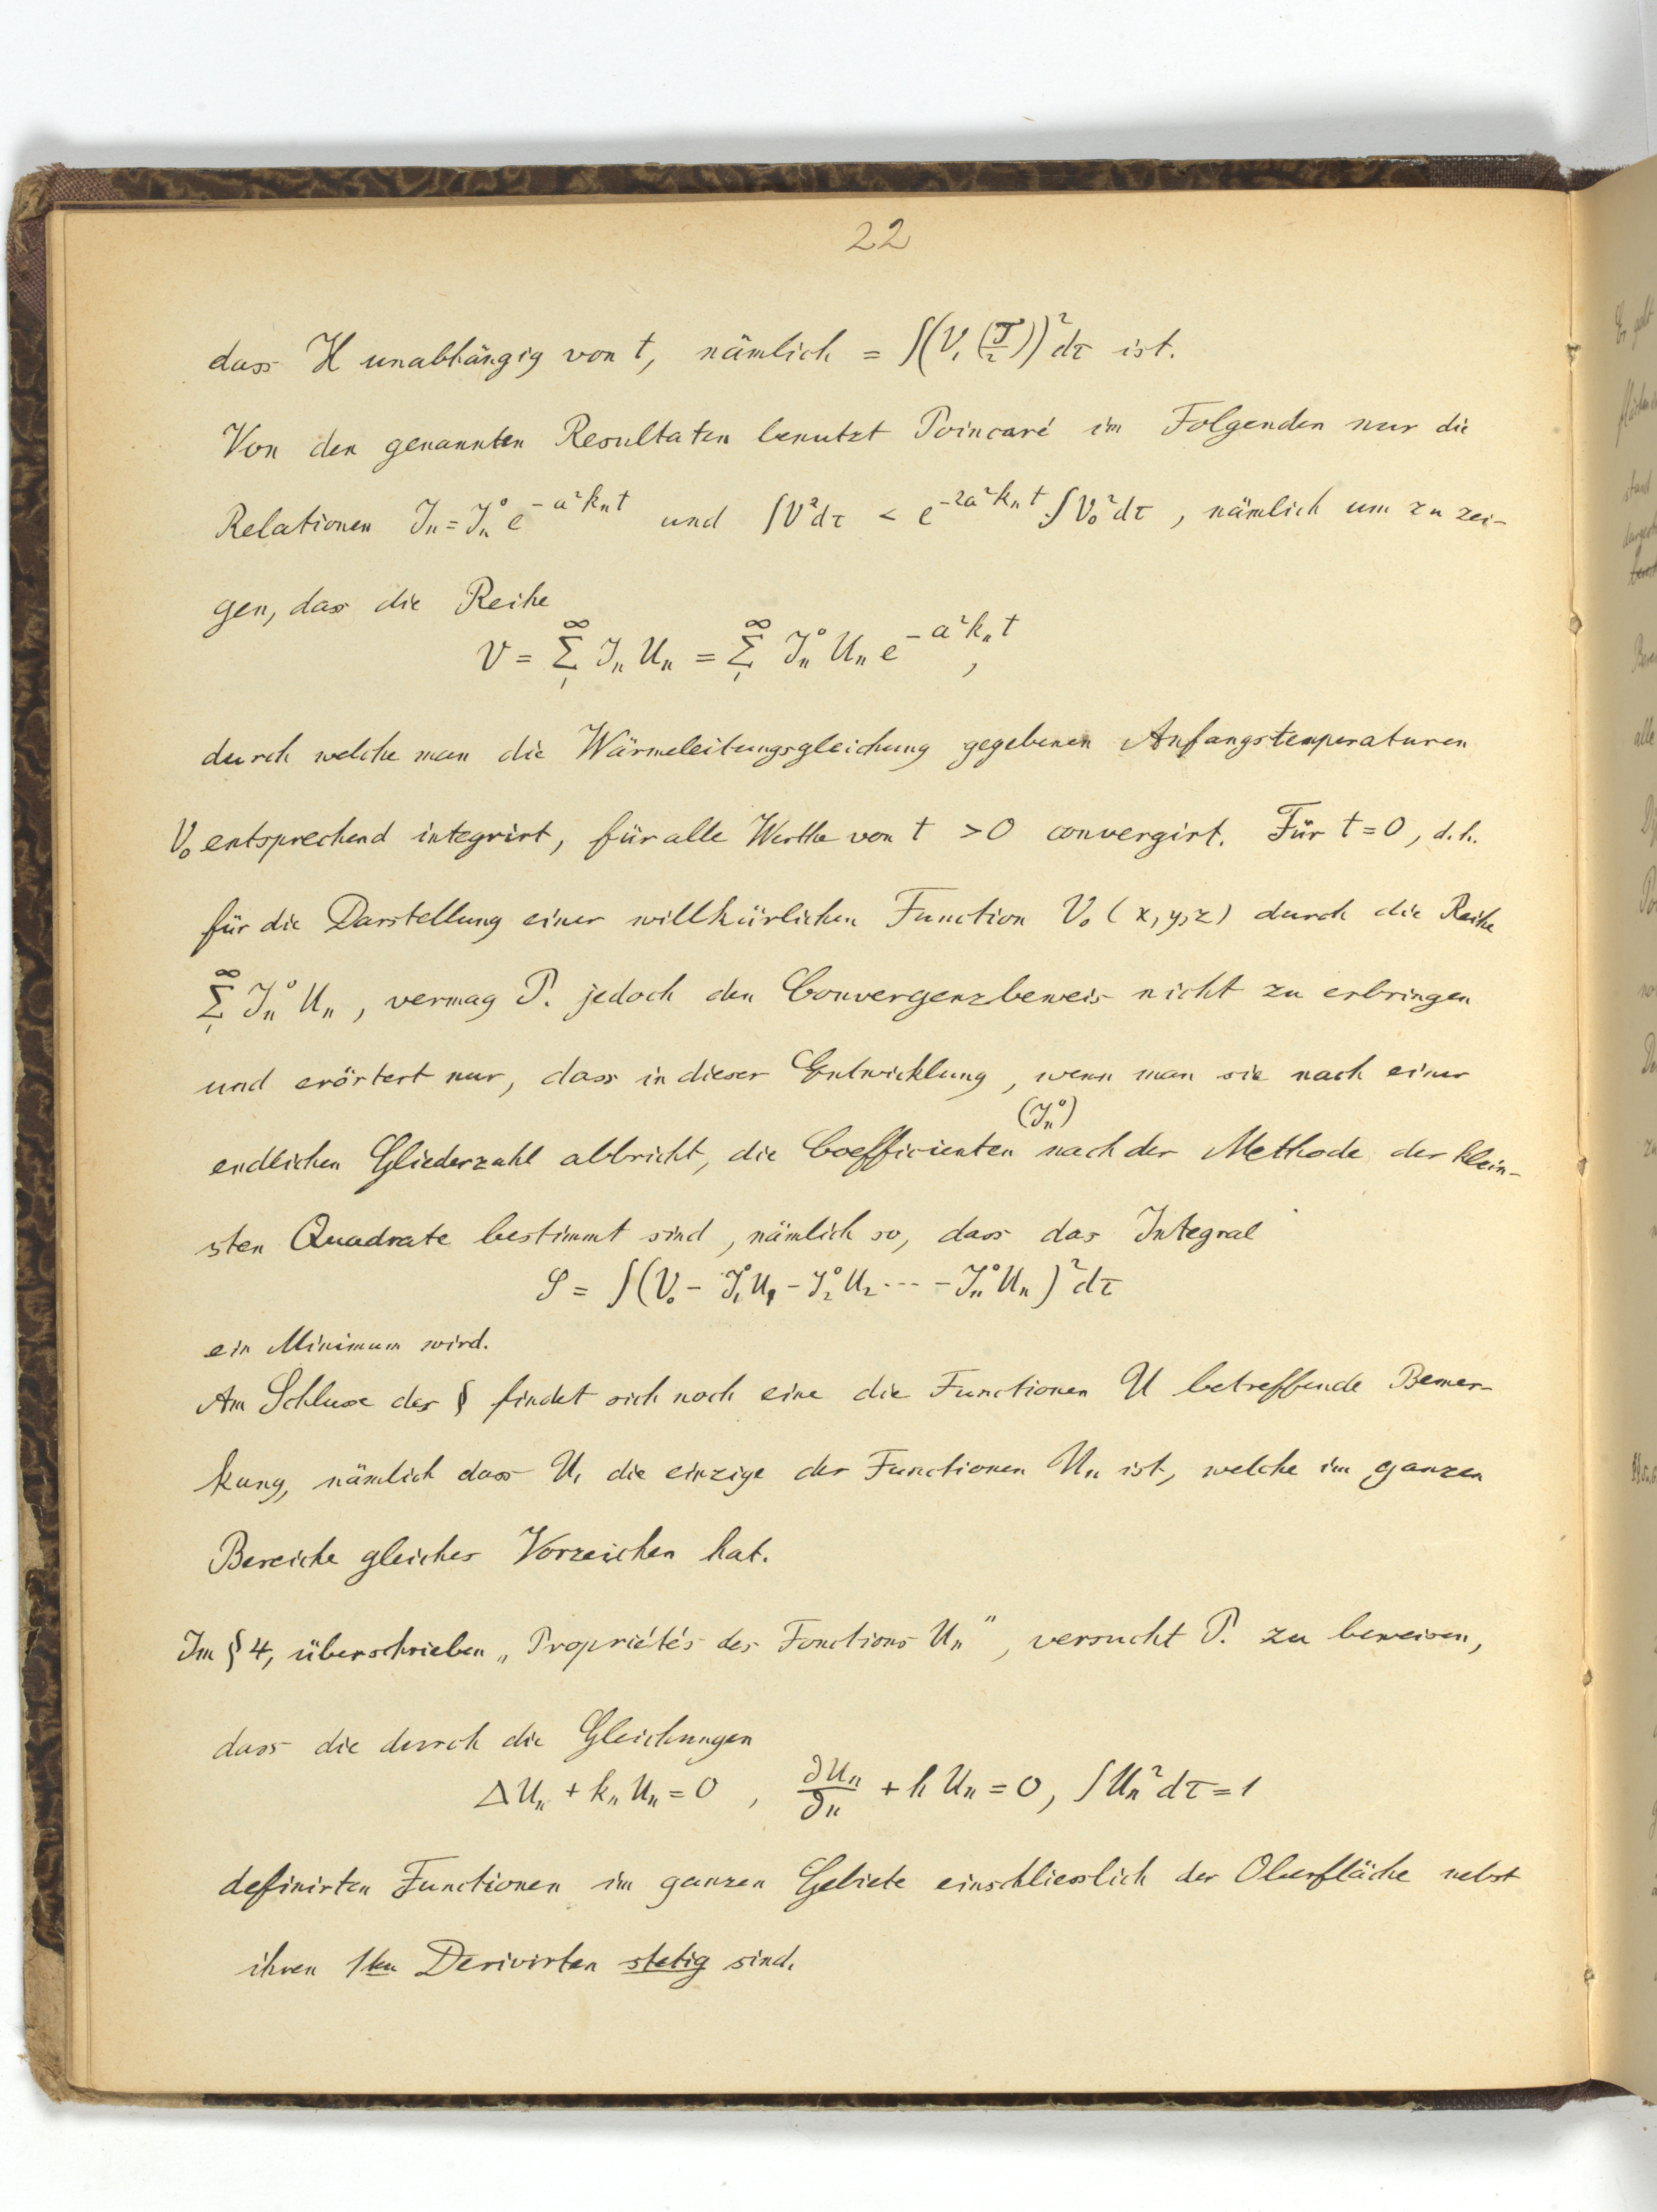 22
dass H unabhängig von t, nämlich = ∫(V₁(T/2))² dτ ist.
Von den genannten Resultaten benutzt Poincaré im Folgenden nur die
Relationen Jₙ = Jₙ⁰ e^{-a²kₙt} und ∫V²dτ < e^{-2a²kₙt}·∫V₀²dτ, nämlich um zu zei-
gen, dass die Reihe
V = Σ₁^∞ Jₙ Uₙ = Σ₁^∞ Jₙ⁰ Uₙ e^{-a²kₙt},
durch welche man die Wärmeleitungsgleichung gegebenen Anfangstemperaturen
V₀ entsprechend integrirt, für alle Werthe von t > 0 convergirt. Für t = 0, d.h.
für die Darstellung einer willkürlichen Function V₀ (x, y, z) durch die Reihe
Σ₁^∞ Jₙ⁰ Uₙ, vermag P. jedoch den Convergenzbeweis nicht zu erbringen
und erörtert nur, dass in dieser Entwicklung, wenn man sie nach einer
(Jₙ⁰)
endlichen Gliederzahl abbricht, die Coefficienten nach der Methode der klein-
sten Quadrate bestimmt sind, nämlich so, dass das Integral
S = ∫(V₀ - J₁⁰U₁ - J₂⁰U₂ ··· - Jₙ⁰Uₙ)² dτ
ein Minimum wird.
Am Schlusse des § findet sich noch eine die Functionen U betreffende Bemer-
kung, nämlich dass U₁ die einzige der Functionen Uₙ ist, welche im ganzen
Bereiche gleiches Vorzeichen hat.
Im § 4, überschrieben „Propriétés des Fonctions Uₙ", versucht P. zu beweisen,
dass die durch die Gleichungen
ΔUₙ + kₙ Uₙ = 0, ∂Uₙ/∂n + h Uₙ = 0, ∫Uₙ² dτ = 1
definirten Functionen im ganzen Gebiete einschliesslich der Oberfläche nebst
ihren 1ten Derivirten stetig sind.